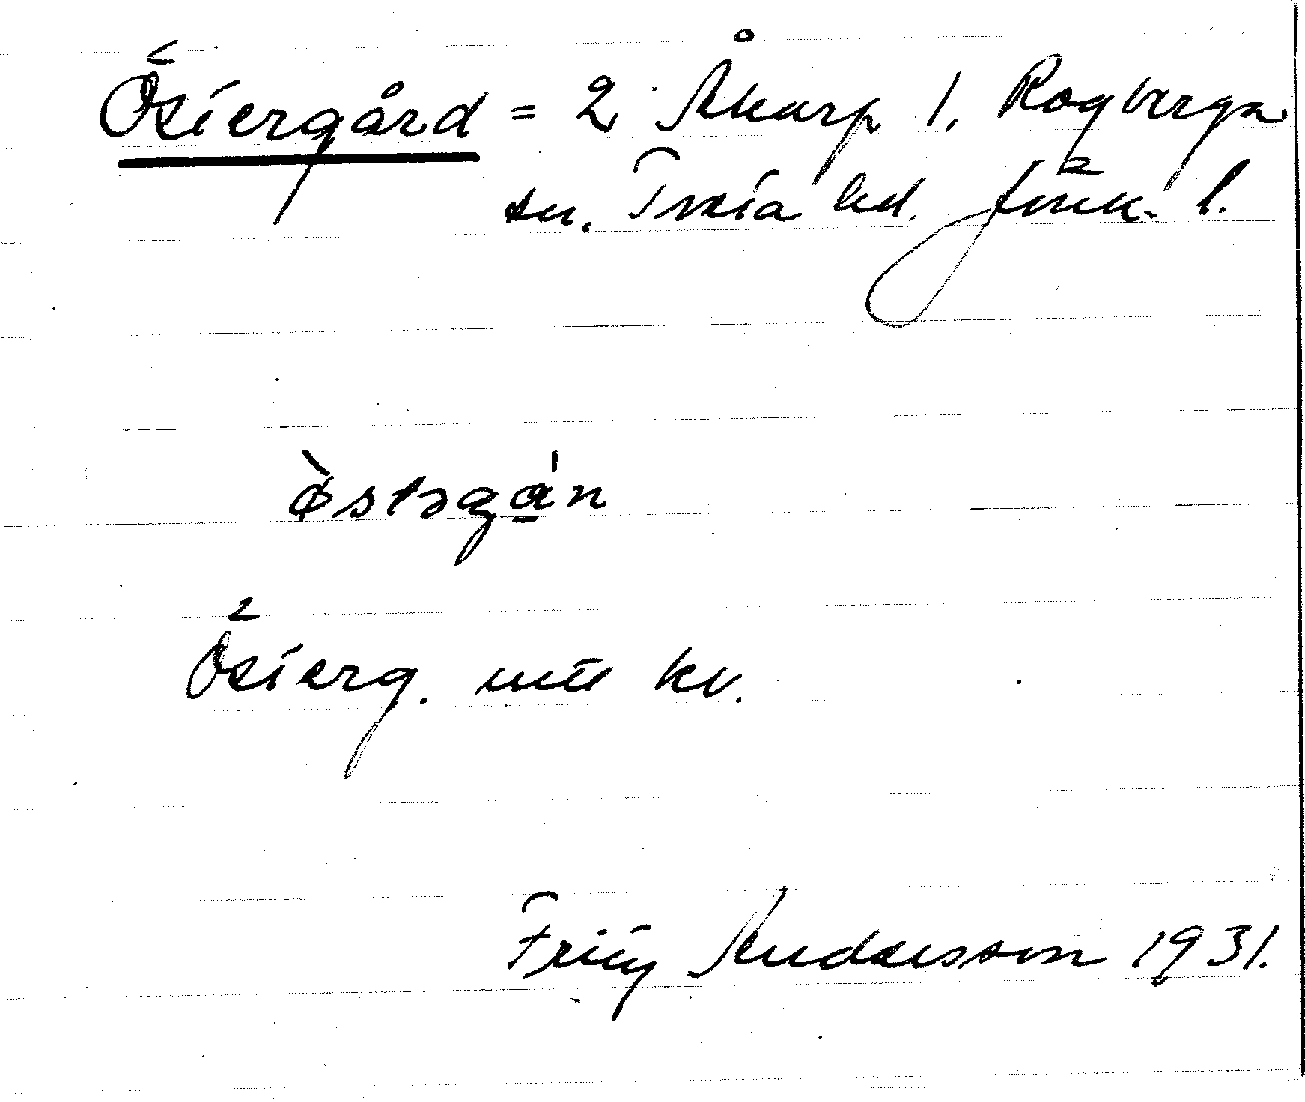 Östergård = 2 Åkarp 1, Rogberga
sn. Tveta hd. Jönk. l.
òstəgán
Österg. utt kv.
Fritz Andersson 1931.